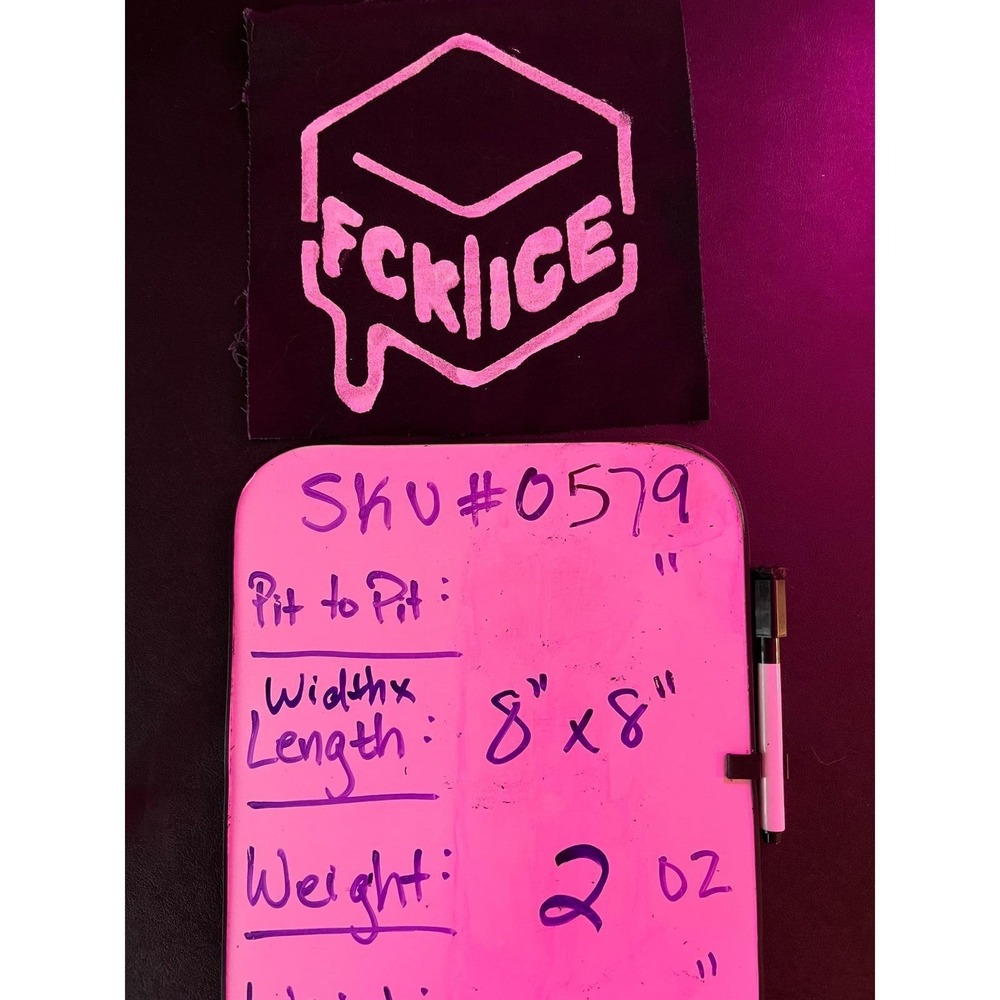 FCK ICE
SKU #0579
Pit to Pit: "
Width x
Length: 8" x 8"
Weight: 2 OZ
"